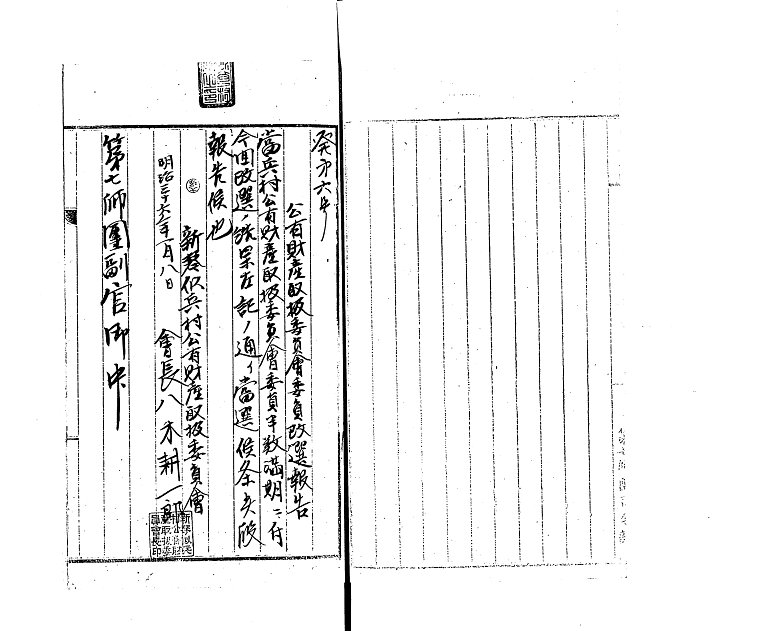 發第六号
公有財産取扱委員會委員改選報告
當兵村公有財産取扱委員會委員半数満期ニ付
今回改選ノ結果左記ノ通リ當選候条此段
報告候也
新琴似兵村公有財産取扱委員會
明治三十六年一月八日
會長八木耕一郎
第七師團副官御中